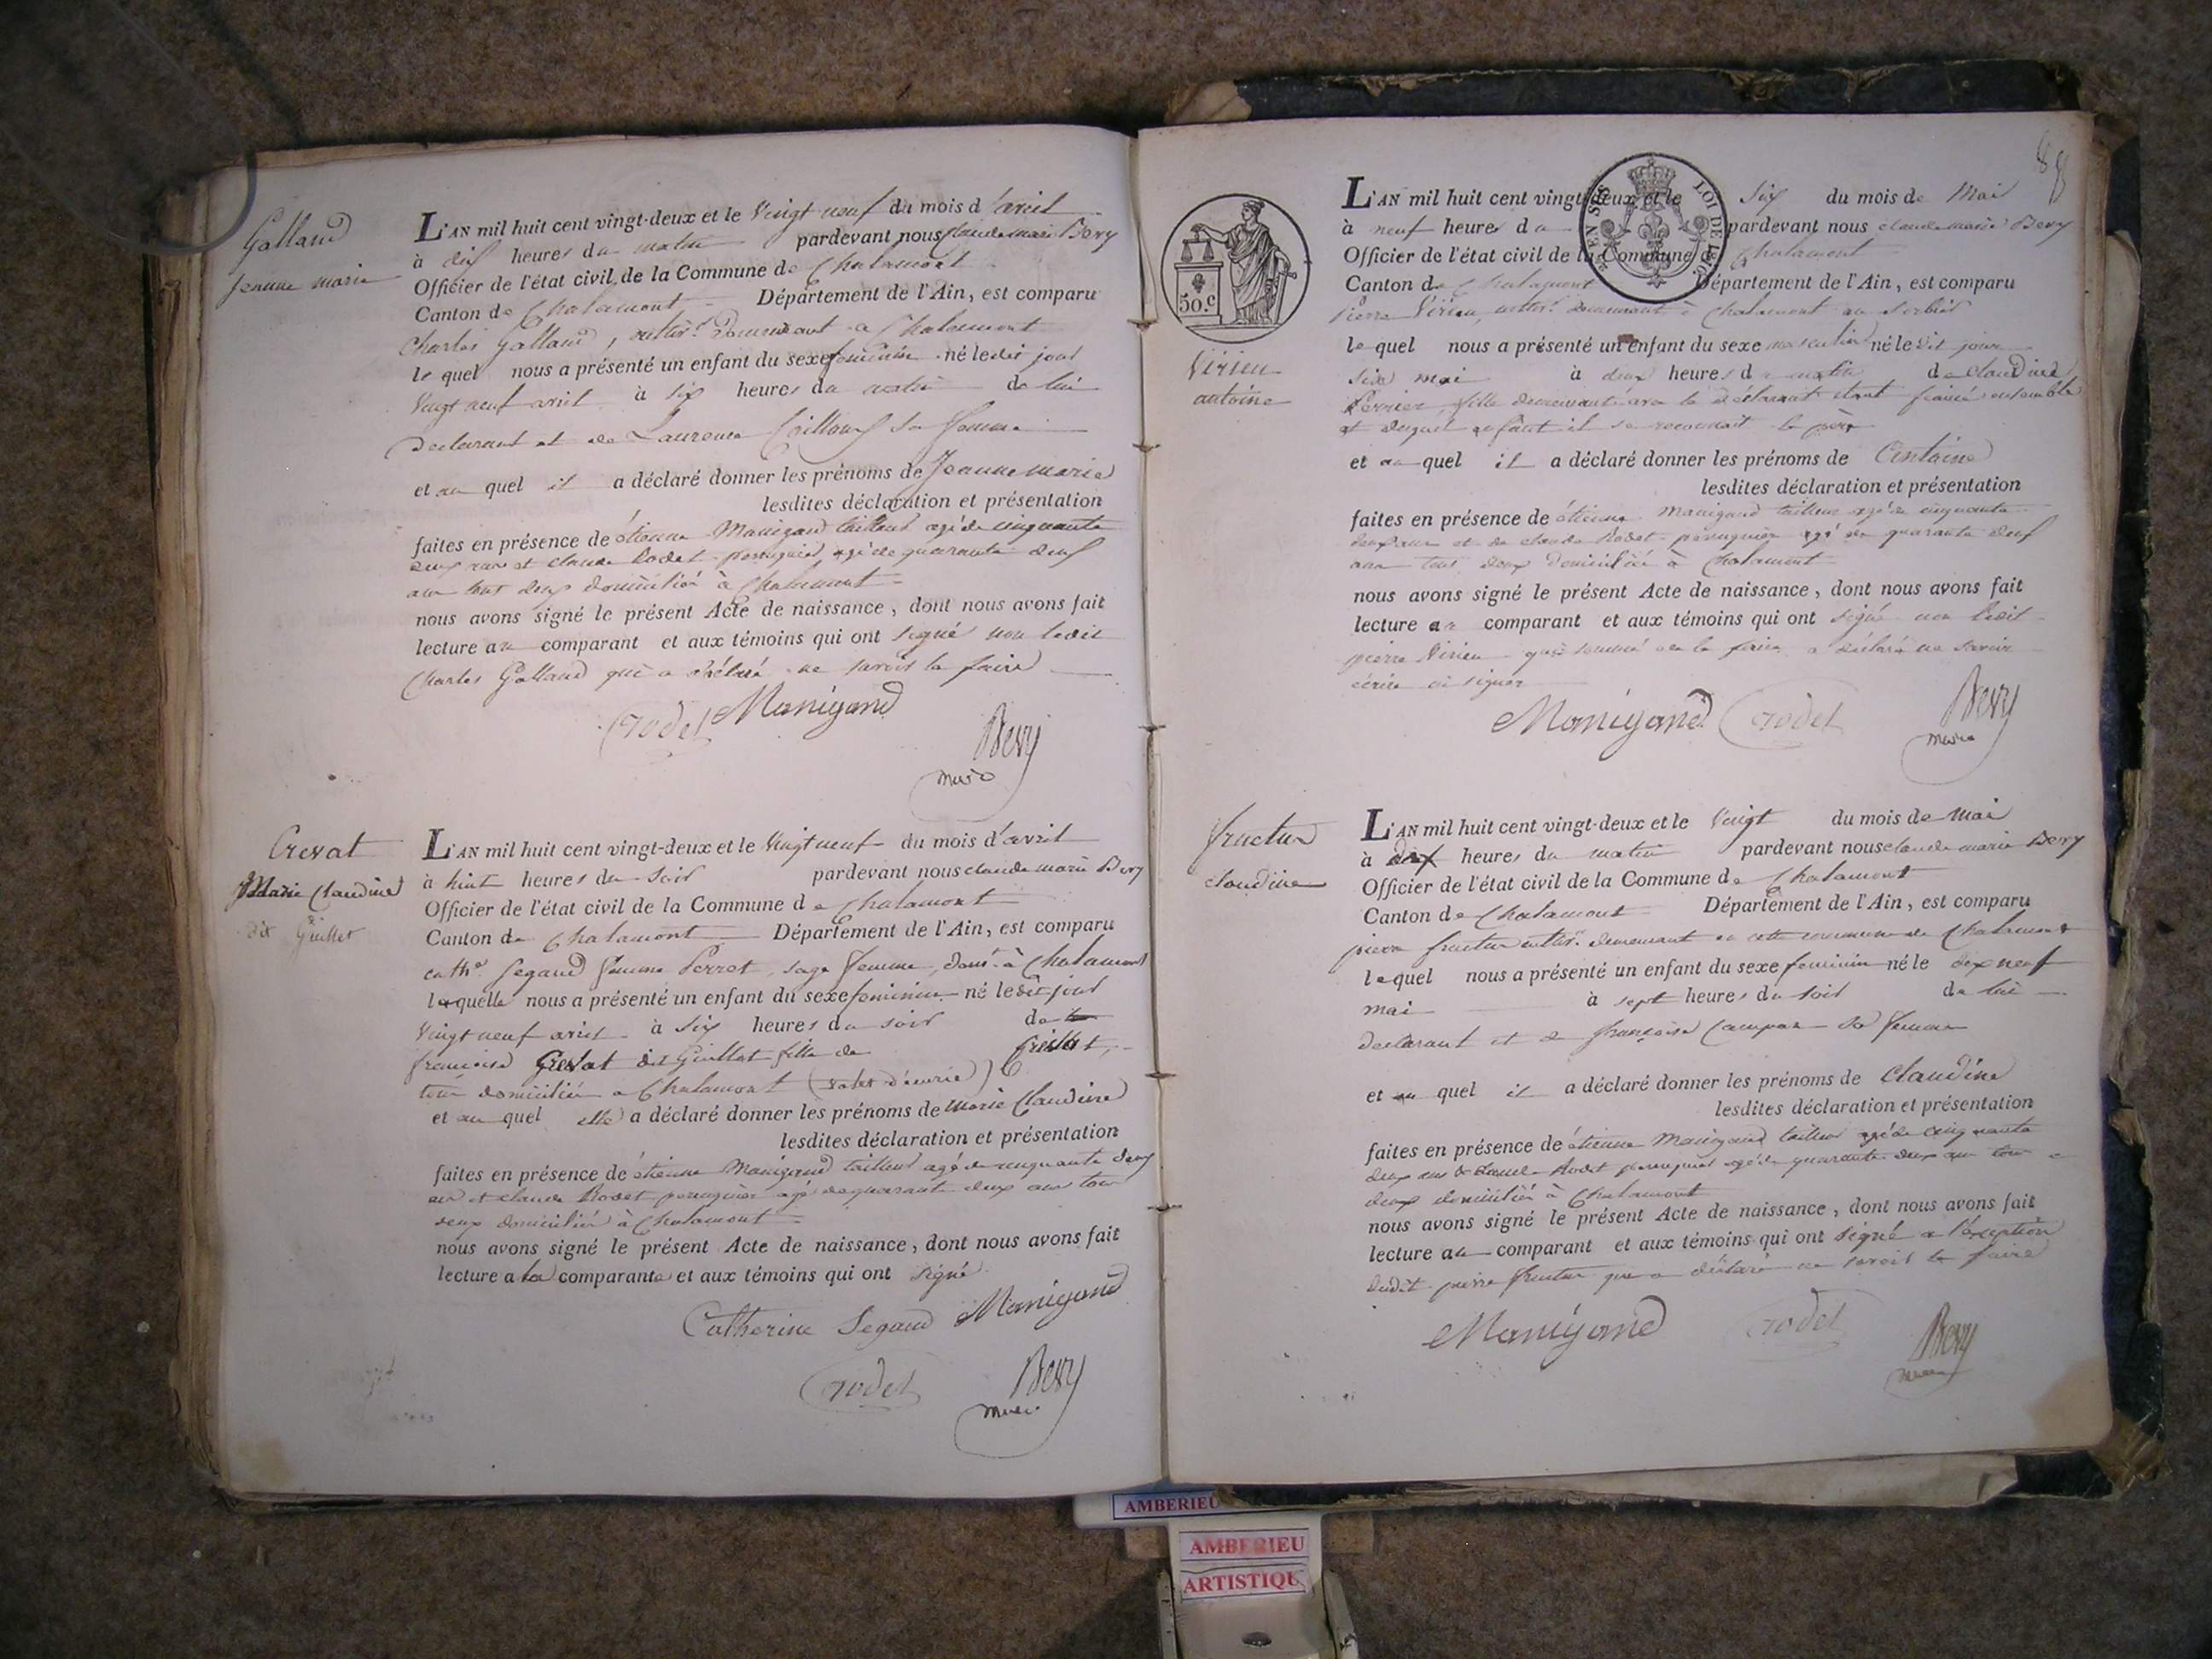 Galland
Jeanne marie
L'AN mil huit cent vingt-deux et le Vingt neuf du mois d'avril
à dix heures du matin pardevant nous claude marie Bevy
Officier de l'état civil de la Commune de Chalamont
Canton de Chalamont Département de l'Ain, est comparu
Charles Galland, cultivr. demeurant a Chalamont
le quel nous a présenté un enfant du sexe feminin né le dit jour
Vingt neuf avril à six heures du matin de lui
declarant et de Laurence sa femme
et au quel il a déclaré donner les prénoms de Jeanne marie
lesdites déclaration et présentation
faites en présence de étienne Manigand tailleur agé de cinquante
deux ans et claude Rodet perruquier agé de quarante deux
ans tout deux domicilié à Chalamont
nous avons signé le présent Acte de naissance, dont nous avons fait
lecture au comparant et aux témoins qui ont signé non ledit
Charles Galland qui a déclaré ne savoir le faire
Rodet Manigand
Bevy
maire
Crevat
Marie Claudine
dit Guillet
L'AN mil huit cent vingt-deux et le Vingt neuf du mois d'avril
à huit heures du soir pardevant nous claude marie Bevy
Officier de l'état civil de la Commune de Chalamont
Canton de Chalamont Département de l'Ain, est comparu
cathe. Segaud femme Perret, sage femme, domt. à Chalamont
laquelle nous a présenté un enfant du sexe feminin né le dit jour
Vingt neuf avril à six heures du soir de
francoise Crevat dit Guillet fille de
tous domiciliés a Chalamont
et au quel elle a déclaré donner les prénoms de marie Claudine
lesdites déclaration et présentation
faites en présence de étienne Manigand tailleur agé de cinquante deux
ans et claude Rodet perruquier agé de quarante deux ans tous
deux domiciliés à Chalamont
nous avons signé le présent Acte de naissance, dont nous avons fait
lecture a la comparante et aux témoins qui ont signé
Catherine Segaud Manigand
Rodet Bevy
maire
88
50.c
Virieu
antoine
L'AN mil huit cent vingt-deux et le Six du mois de Mai
à neuf heures du pardevant nous claude marie Bevy
Officier de l'état civil de la Commune de Chalamont
Canton de Chalamont Département de l'Ain, est comparu
Pierre Virieu, cultivr. demeurant à Chalamont au
le quel nous a présenté un enfant du sexe masculin né le dit jour
six mai à deux heures du matin de claudine
Perrier, fille demeurant avec le déclarant étant fiancé ensemble
et duquel enfant il se reconnait le père
et au quel il a déclaré donner les prénoms de Antoine
lesdites déclaration et présentation
faites en présence de étienne Manigand tailleur agé de cinquante
deux ans et de claude Rodet perruquier agé de quarante deux
ans tous deux domicilié à Chalamont
nous avons signé le présent Acte de naissance, dont nous avons fait
lecture au comparant et aux témoins qui ont signé non ledit
pierre Virieu qui sommé de le faire a déclaré ne savoir
écrire ni signer
Manigand Rodet Bevy
maire
fructus
claudine
L'AN mil huit cent vingt-deux et le Vingt du mois de Mai
à dix heures du matin pardevant nous claude marie Bevy
Officier de l'état civil de la Commune de Chalamont
Canton de Chalamont Département de l'Ain, est comparu
pierre fructus cultivr. demeurant en cette commune de Chalamont
le quel nous a présenté un enfant du sexe feminin né le dix neuf
mai à sept heures du soir de lui
declarant et de françoise sa femme
et au quel il a déclaré donner les prénoms de Claudine
lesdites déclaration et présentation
faites en présence de étienne Manigand tailleur agé de cinquante
deux ans & claude Rodet perruquier agé de quarante deux ans tous
deux domiciliés à Chalamont
nous avons signé le présent Acte de naissance, dont nous avons fait
lecture au comparant et aux témoins qui ont signé a l'éxception
dudit pierre fructus qui a déclaré ne savoir le faire
Manigand Rodet Bevy
maire
AMBERIEU
AMBERIEU
ARTISTIQU